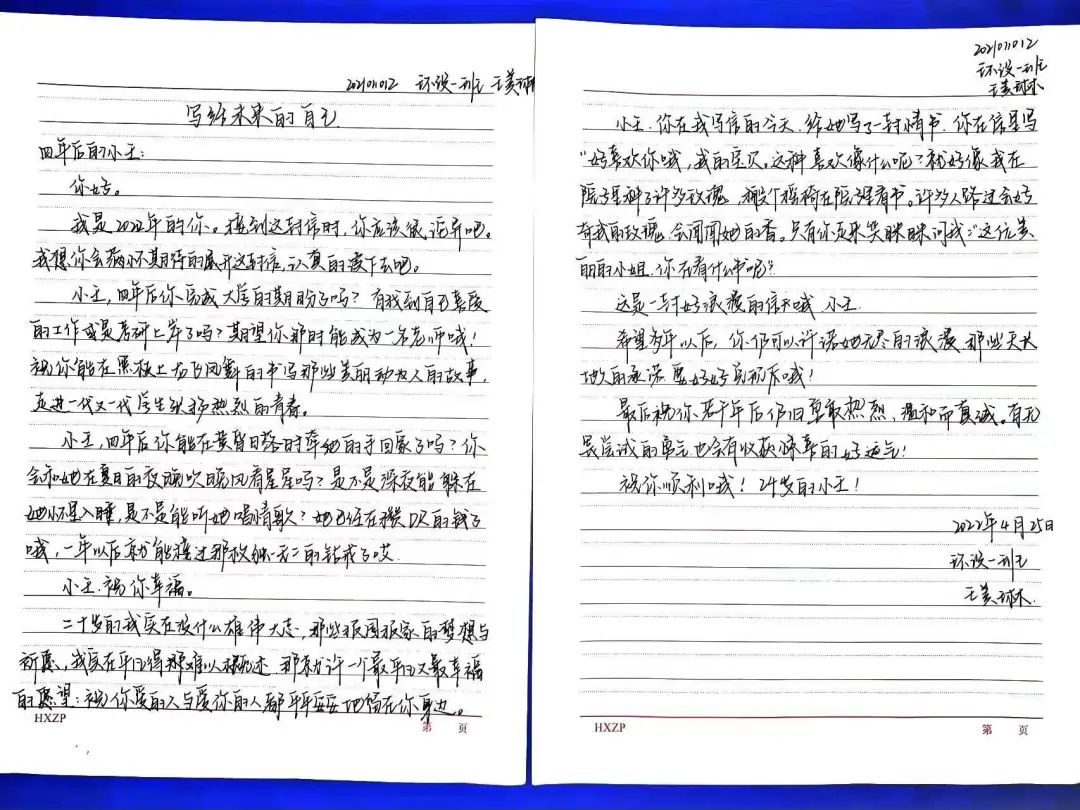 202101012 环设一班 王美琳
写给未来的自己
四年后的小王:
你好。
我是2022年的你。接到这封信时,你应该很诧异吧。
我想你会满怀期待的展开这封信,认真的读下去吧。
小王,四年后你完成大学的期盼了吗?有找到自己喜爱
的工作或是考研上岸了吗?期望你那时能成为一名老师哦!
祝你能在黑板上龙飞凤舞的书写那些美丽动人的故事,
走进一代又一代学生张扬热烈的青春。
小王,四年后你能在黄昏日落时牵她的手回家了吗?你
会和她在夏日的夜晚吹晚风看星星吗?是不是深夜能躲在
她怀里入睡,是不是能听她唱情歌?她已经在攒DR的钱了
哦,一年以后就能接过那枚独一无二的钻戒了哎
小王.祝你幸福。
二十岁的我实在没什么雄伟大志,那些报国报家的梦想与
祈愿,我实在平凡得难以概述 那就许一个最平凡又最幸福
的愿望:祝你爱的人与爱你的人都平平安安地留在你身边。
HXZP 第 页
202101012
环设一班
王美琳
小王.你在我写信的今天.给她写了一封情书.你在信里写
"好喜欢你哦,我的宝贝。这种喜欢像什么呢?就好像我在
院子里种了许多玫瑰,搬个摇椅在院里看书。许多人路过会夸
夸我的玫瑰,会闻闻她的香。只有你负来笑眯眯问我:"这位美
丽的小姐.你在看什么书呢?"
这是一封好浪漫的信哦 小王.
希望多年以后,你仍可以许诺她无尽的浪漫 那些天长
地久的承诺 要好好兑现后哦!
最后祝你若干年后仍旧勇敢热烈,温和而真诚。有无
畏尝试的勇气也会有收获惊喜的好运气!
祝你顺利哦!24岁的小王!
2022年4月25日
环设一班
王美琳.
HXZP 第 页